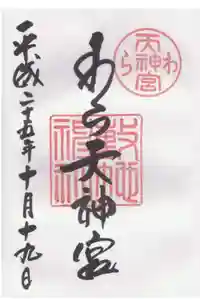 わら天神宮
わら天神宮
敷地
神社
平成二十五年十月十九日